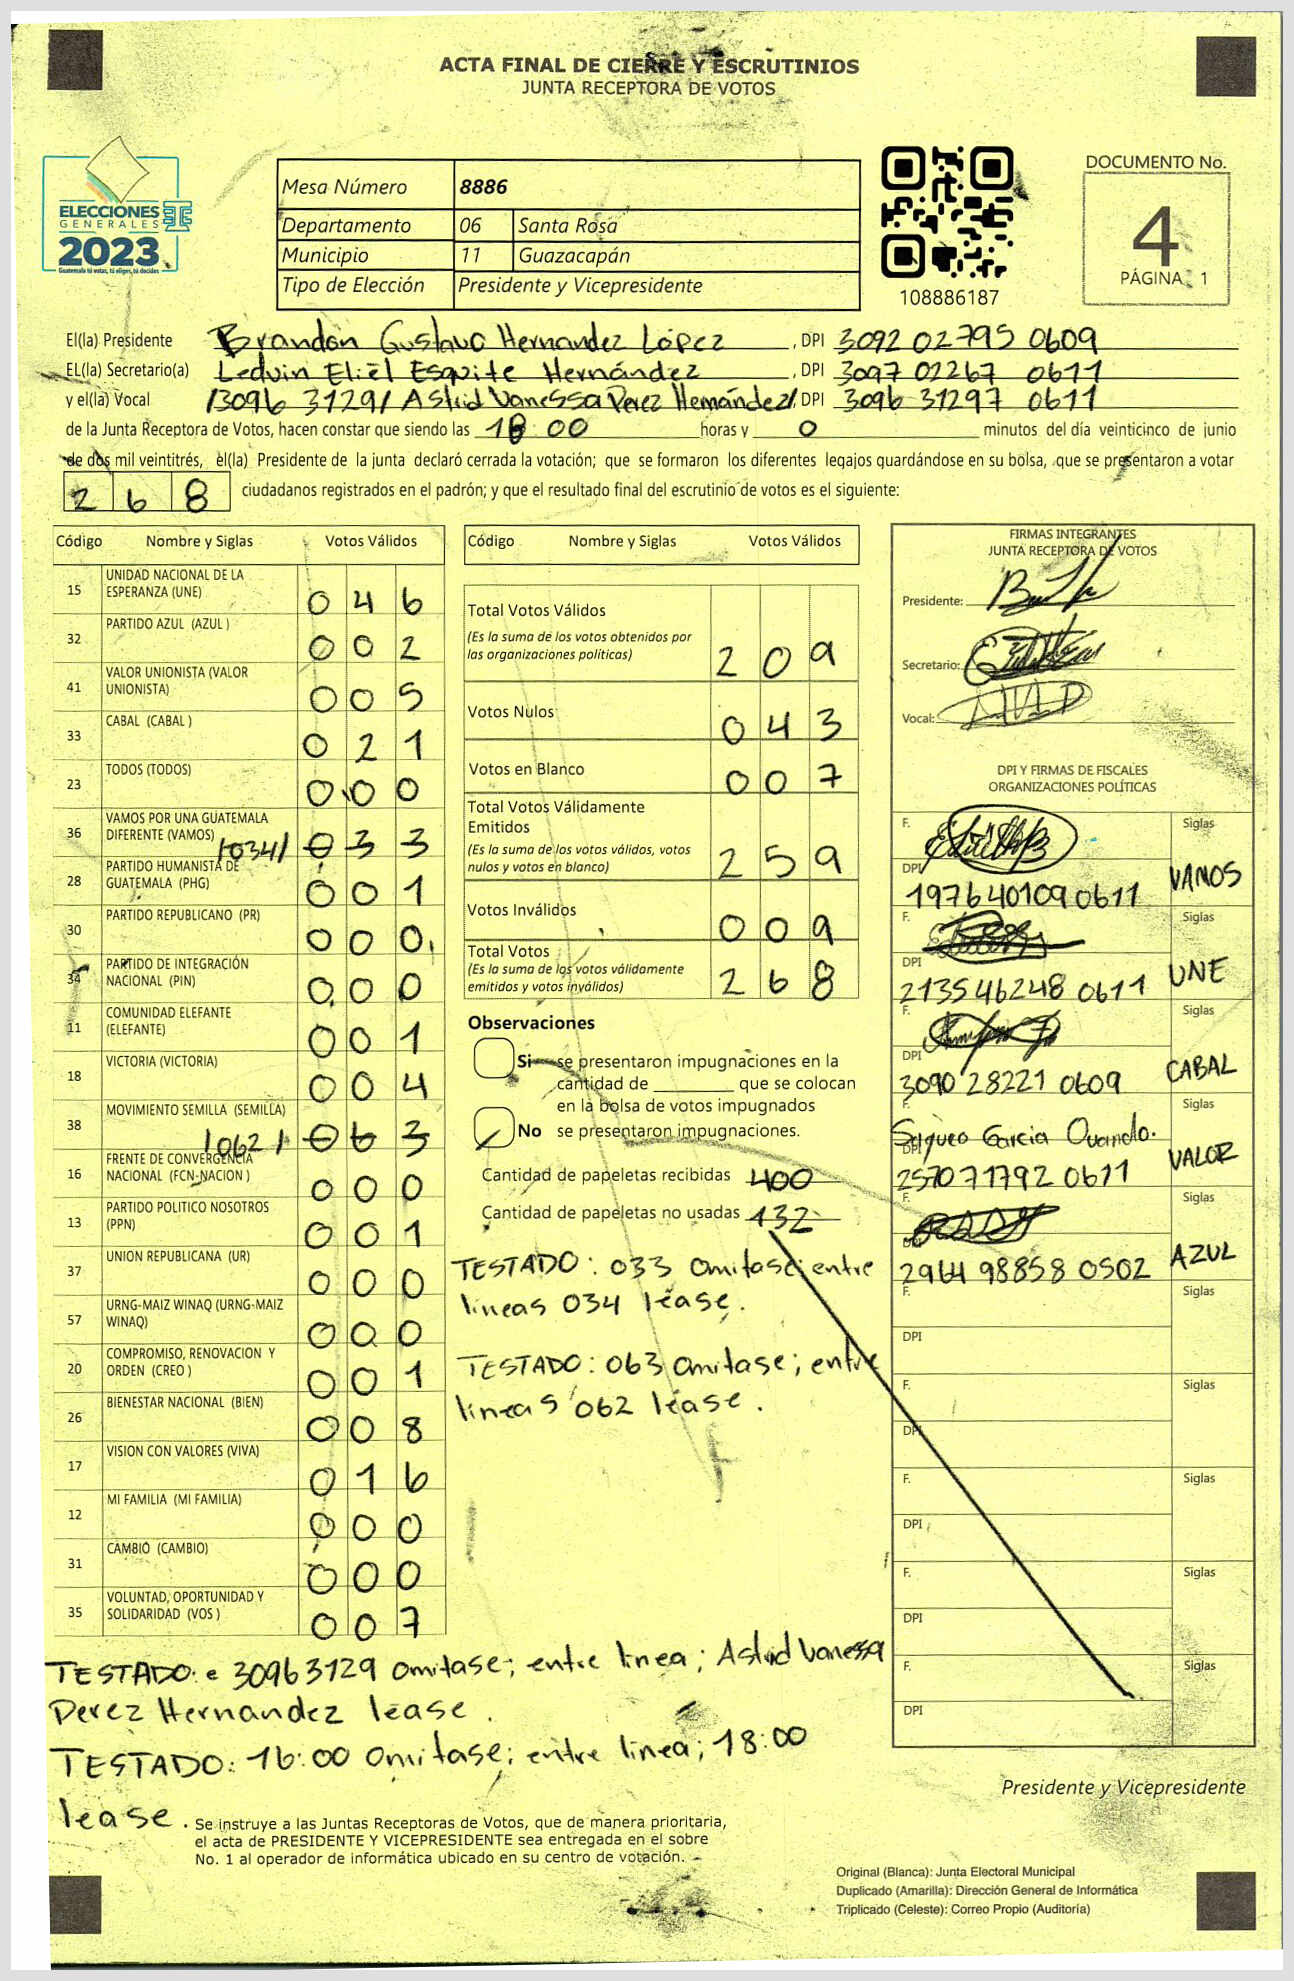 ACTA FINAL DE CIERRE Y ESCRUTINIOS
JUNTA RECEPTORA DE VOTOS
ELECCIONES
GENERALES
2023
Guatemala tú votas, tú eliges, tú decides
Mesa Número 8886
Departamento 06 Santa Rosa
Municipio 11 Guazacapán
Tipo de Elección Presidente y Vicepresidente
108886187
DOCUMENTO No.
4
PÁGINA 1
El(la) Presidente Brandon Gustavo Hernandez López, DPI 3092 02795 0609
EL(la) Secretario(a) Leduin Eliel Esquite Hernández, DPI 3097 02267 0611
y el(la) Vocal /3096 3129/ Astrid Vanessa Perez Hernández/, DPI 3096 31297 0611
de la Junta Receptora de Votos, hacen constar que siendo las 18 00 horas y 0 minutos del día veinticinco de junio
de dos mil veintitrés, el(la) Presidente de la junta declaró cerrada la votación; que se formaron los diferentes legajos guardándose en su bolsa, que se presentaron a votar
268 ciudadanos registrados en el padrón; y que el resultado final del escrutinio de votos es el siguiente:
Código Nombre y Siglas Votos Válidos
15 UNIDAD NACIONAL DE LA ESPERANZA (UNE) 046
32 PARTIDO AZUL (AZUL ) 002
41 VALOR UNIONISTA (VALOR UNIONISTA) 005
33 CABAL (CABAL ) 021
23 TODOS (TODOS) 000
36 VAMOS POR UNA GUATEMALA DIFERENTE (VAMOS) /034/ 033
28 PARTIDO HUMANISTA DE GUATEMALA (PHG) 001
30 PARTIDO REPUBLICANO (PR) 000
34 PARTIDO DE INTEGRACIÓN NACIONAL (PIN) 000
11 COMUNIDAD ELEFANTE (ELEFANTE) 001
18 VICTORIA (VICTORIA) 004
38 MOVIMIENTO SEMILLA (SEMILLA) /062/ 063
16 FRENTE DE CONVERGENCIA NACIONAL (FCN-NACION ) 000
13 PARTIDO POLITICO NOSOTROS (PPN) 001
37 UNION REPUBLICANA (UR) 000
57 URNG-MAIZ WINAQ (URNG-MAIZ WINAQ) 000
20 COMPROMISO, RENOVACION Y ORDEN (CREO ) 001
26 BIENESTAR NACIONAL (BIEN) 008
17 VISION CON VALORES (VIVA) 016
12 MI FAMILIA (MI FAMILIA) 000
31 CAMBIO (CAMBIO) 000
35 VOLUNTAD, OPORTUNIDAD Y SOLIDARIDAD (VOS ) 007
Código Nombre y Siglas Votos Válidos
Total Votos Válidos 209
(Es la suma de los votos obtenidos por
las organizaciones políticas)
Votos Nulos 043
Votos en Blanco 007
Total Votos Válidamente
Emitidos 259
(Es la suma de los votos válidos, votos
nulos y votos en blanco)
Votos Inválidos 009
Total Votos 268
(Es la suma de los votos válidamente
emitidos y votos inválidos)
Observaciones
Si se presentaron impugnaciones en la
cantidad de ________ que se colocan
en la bolsa de votos impugnados
No se presentaron impugnaciones.
Cantidad de papeletas recibidas 400
Cantidad de papeletas no usadas 132
TESTADO: 033 omitase; entre
lineas 034 léase.
TESTADO: 063 omitase; entre
lineas 062 léase.
FIRMAS INTEGRANTES
JUNTA RECEPTORA DE VOTOS
Presidente:
Secretario:
Vocal:
DPI Y FIRMAS DE FISCALES
ORGANIZACIONES POLÍTICAS
F. Siglas
DPI 1976401090611 VAMOS
F. Siglas
DPI 2135462480611 UNE
F. Siglas
DPI 3090 28221 0609 CABAL
F. Garcia Siglas
DPI 2570717920611 VALOR
F. Siglas
DPI 98858 0502 AZUL
F. Siglas
DPI
F. Siglas
DPI
F. Siglas
DPI
F. Siglas
DPI
F. Siglas
DPI
TESTADO: e 30963129 omitase; entre linea; Astrid Vanessa
Perez Hernandez léase.
TESTADO: 16:00 omitase; entre linea; 18:00
léase.
Se instruye a las Juntas Receptoras de Votos, que de manera prioritaria,
el acta de PRESIDENTE Y VICEPRESIDENTE sea entregada en el sobre
No. 1 al operador de informática ubicado en su centro de votación.
Presidente y Vicepresidente
Original (Blanca): Junta Electoral Municipal
Duplicado (Amarilla): Dirección General de Informática
Triplicado (Celeste): Correo Propio (Auditoría)